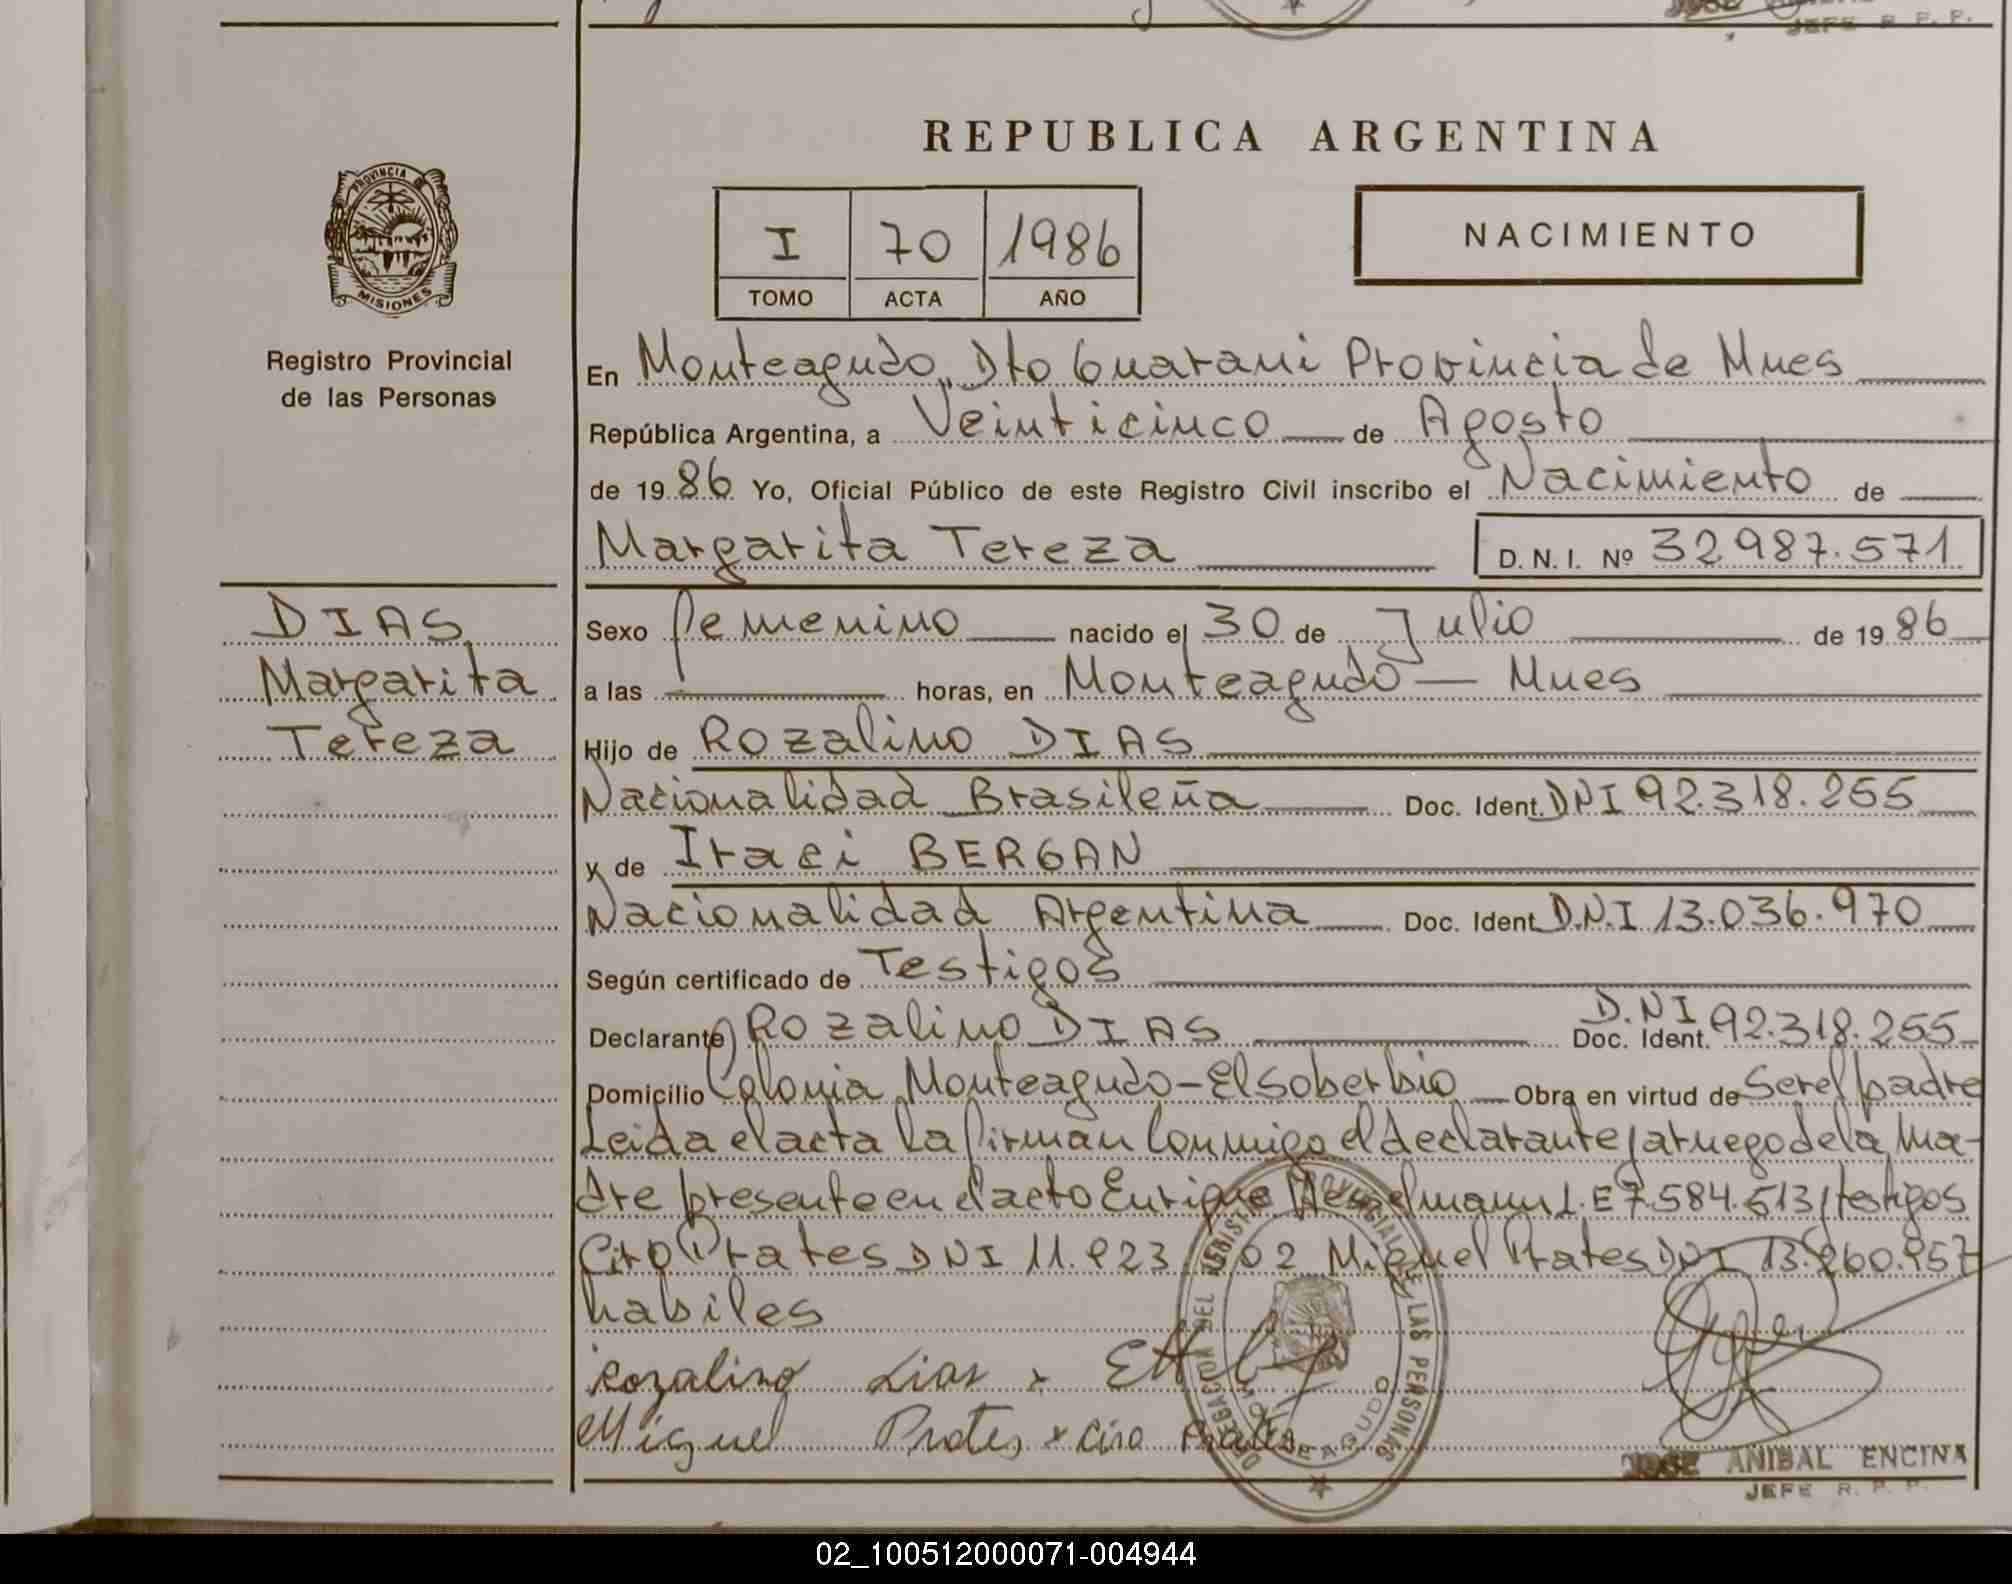 JEFE R. P. P.
REPUBLICA ARGENTINA
PROVINCIA DE
MISIONES
Registro Provincial
de las Personas
I 70 1986
TOMO ACTA AÑO
NACIMIENTO
En Monteagudo, Dto Guarani Provincia de Mnes
República Argentina, a Veinticinco de Agosto
de 1986 Yo, Oficial Público de este Registro Civil inscribo el Nacimiento de
Margarita Tereza D. N. I. Nº 32.987.571
DIAS
Margarita
Tereza
Sexo femenino nacido el 30 de Julio de 1986
a las horas, en Monteagudo - Mnes
Hijo de Rozalino DIAS
Nacionalidad Brasileña Doc. Ident. DNI 92.318.255
y de Iraci BERGAN
Nacionalidad Argentina Doc. Ident. D.N.I 13.036.970
Según certificado de Testigos
Declarante Rozalino DIAS Doc. Ident. D.NI 92.318.255
Domicilio Colonia Monteagudo - El soberbio Obra en virtud de Ser el padre
Leida el acta la firman conmigo el declarante, a ruego de la ma-
dre presente en el acto Enrique L.E 7.584.513, testigos
Ciro Prates DNI 11. Miguel Prates DNI
habiles
Rozalino Dias x
Miguel Prates x Ciro Prates
DELEGACION DEL REGISTRO PROVINCIAL DE LAS PERSONAS
MONTEAGUDO
JOSE ANIBAL ENCINA
JEFE R. P. P.
02_100512000071-004944